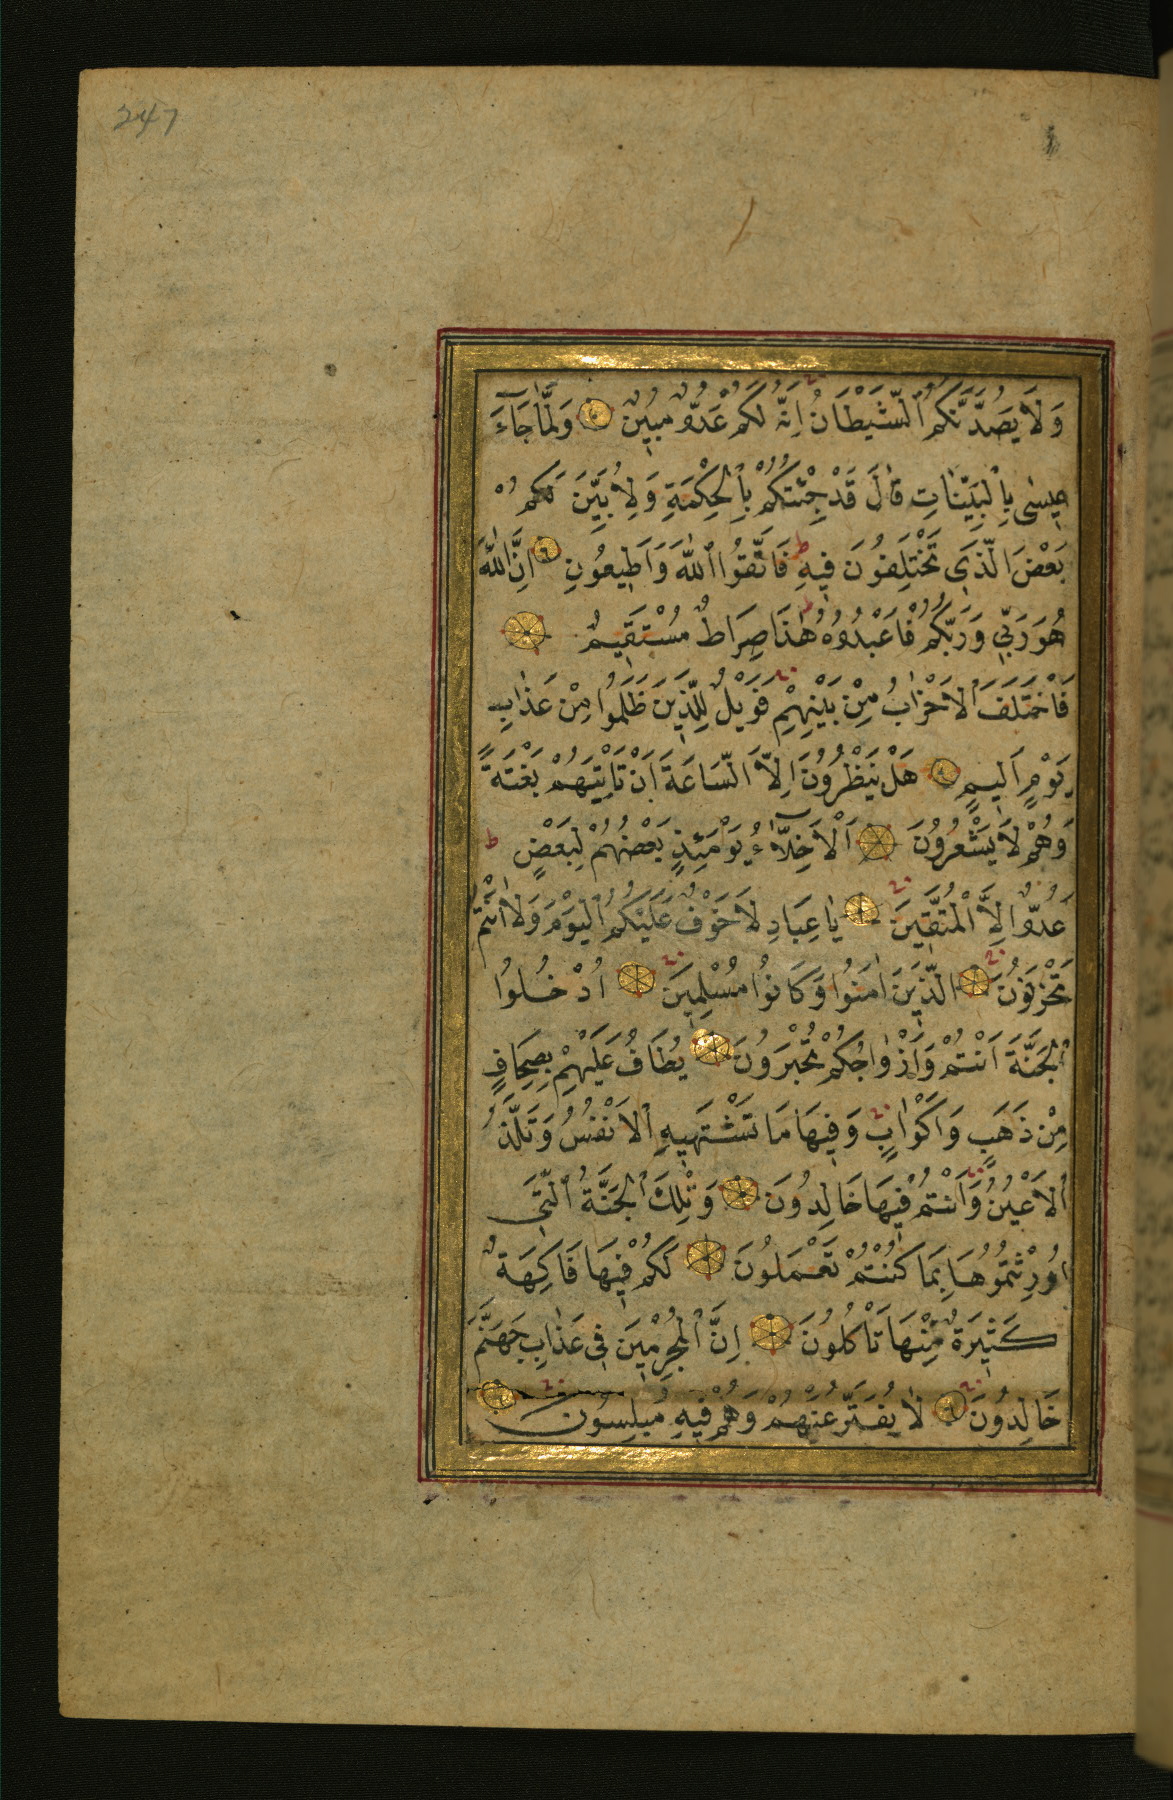 247
وَلَا يَصُدَّنَّكُمُ ٱلشَّيْطَانُ اِنَّهُ لَكُمْ عَدُوٌّ مُبِينٌ وَلَمَّا جَآءَ
عِيسٰى بِٱلْبَيِّنَاتِ قَالَ قَدْ جِئْتُكُمْ بِٱلْحِكْمَةِ وَلِاُبَيِّنَ لَكُمْ
بَعْضَ الَّذِى تَخْتَلِفُونَ فِيهِ ط فَاتَّقُوا ٱللّٰهَ وَاَطِيعُونِ اِنَّ اللّٰهَ
هُوَ رَبِّي وَرَبُّكُمْ فَاعْبُدُوهُ ط هٰذَا صِرَاطٌ مُسْتَقِيمٌ
فَاخْتَلَفَ ٱلْاَحْزٰابُ مِنْ بَيْنِهِمْ فَوَيْلٌ لِلَّذِينَ ظَلَمُوا مِنْ عَذٰابِ
يَوْمٍ اَلِيمٍ هَلْ يَنْظُرُونَ اِلَّا السَّاعَةَ اَنْ تَاْتِيَهُمْ بَغْتَةً
وَهُمْ لَا يَشْعُرُونَ اَلْاَخِلَّاۤءُ يَوْمَئِذٍ بَعْضُهُمْ لِبَعْضٍ ط
عَدُوٌّ اِلَّا الْمُتَّقِينَ يٰا عِبَادِ لَا خَوْفٌ عَلَيْكُمُ ٱلْيَوْمَ وَلَا اَنْتُمْ
تَحْزَنُونَ الَّذِينَ اٰمَنُوا وَكَانُوا مُسْلِمِينَ اُدْخُلُوا
ٱلْجَنَّةَ اَنْتُمْ وَاَزْوٰاجُكُمْ تُحْبَرُونَ يُطَافُ عَلَيْهِمْ بِصِحَافٍ
مِنْ ذَهَبٍ وَاَكْوٰابٍ وَفِيهَا مَا تَشْتَهِيهِ ٱلْاَنْفُسُ وَتَلَذُّ
ٱلْاَعْيُنُ وَاَنْتُمْ فِيهَا خَالِدُونَ وَتِلْكَ ٱلْجَنَّةُ ٱلَّتِى
اُورِثْتُمُوهَا بِمَا كُنْتُمْ تَعْمَلُونَ لَكُمْ فِيهَا فَاكِهَةٌ
كَثِيرَةٌ مِنْهَا تَاْكُلُونَ اِنَّ ٱلْمُجْرِمِينَ فِى عَذٰابِ جَهَنَّمَ
خَالِدُونَ لَا يُفَتَّرُ عَنْهُمْ وَهُمْ فِيهِ مُبْلِسُونَ